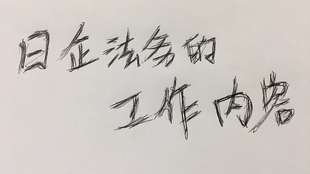 日企法务的
工作内容